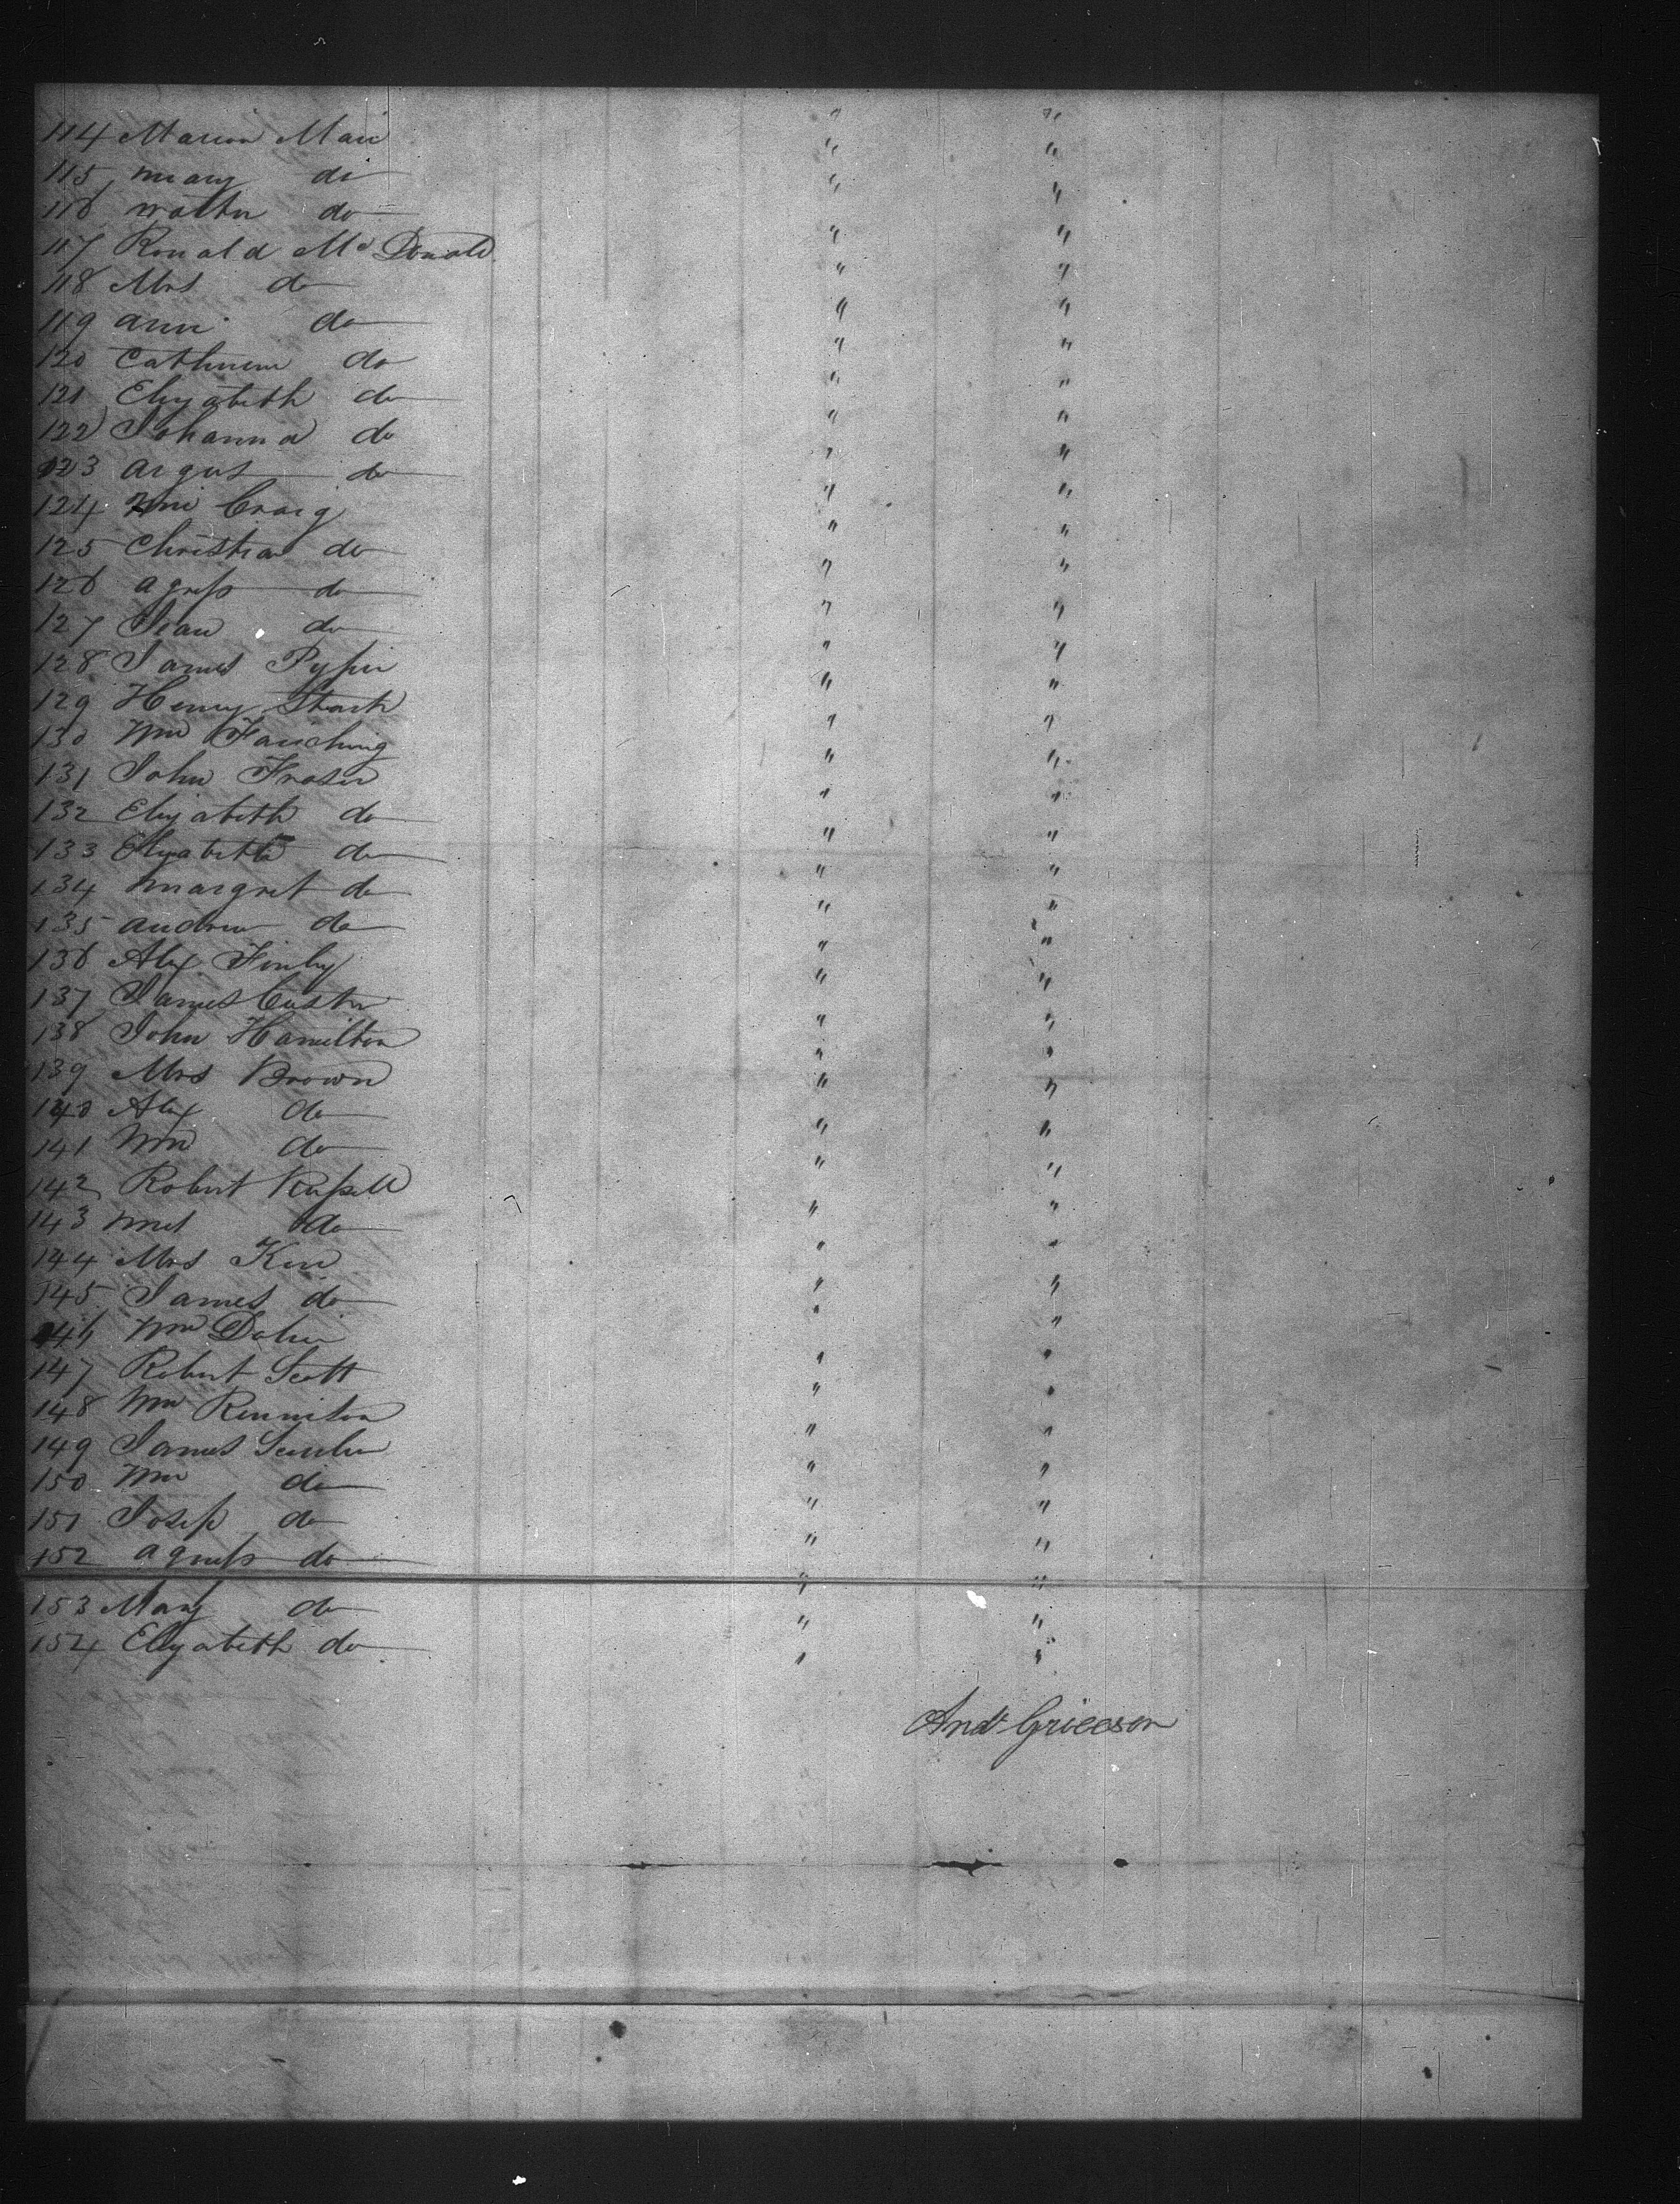 114 Marion Mair " "
115 Mary do " "
116 Walter do " "
117 Ronald Mc Donald " "
118 Mrs do " "
119 Ann do " "
120 Catherine do " "
121 Elizabeth do " "
122 Johanna do " "
123 Argus do " "
124 Wm Craig " "
125 Christian do " "
126 Agness do " "
127 Jean do " "
128 James Pyper " "
129 Henry Stark " "
130 Wm " "
131 John Fraser " "
132 Elizabeth do " "
133 Elizabeth do " "
134 Margret do " "
135 Andrew do " "
136 Alex Finley " "
137 James " "
138 John Hamilton " "
139 Mrs Brown " "
140 Alex do " "
141 Wm do " "
142 Robert Russell " "
143 Mrs do " "
144 Mrs Kerr " "
145 James do " "
146 Wm " "
147 Robert Scott " "
148 Wm Renniton " "
149 James " "
150 Wm do " "
151 Josep do " "
152 Agness do " "
153 Mary do " "
154 Elizabeth do " "
Andw Grierson